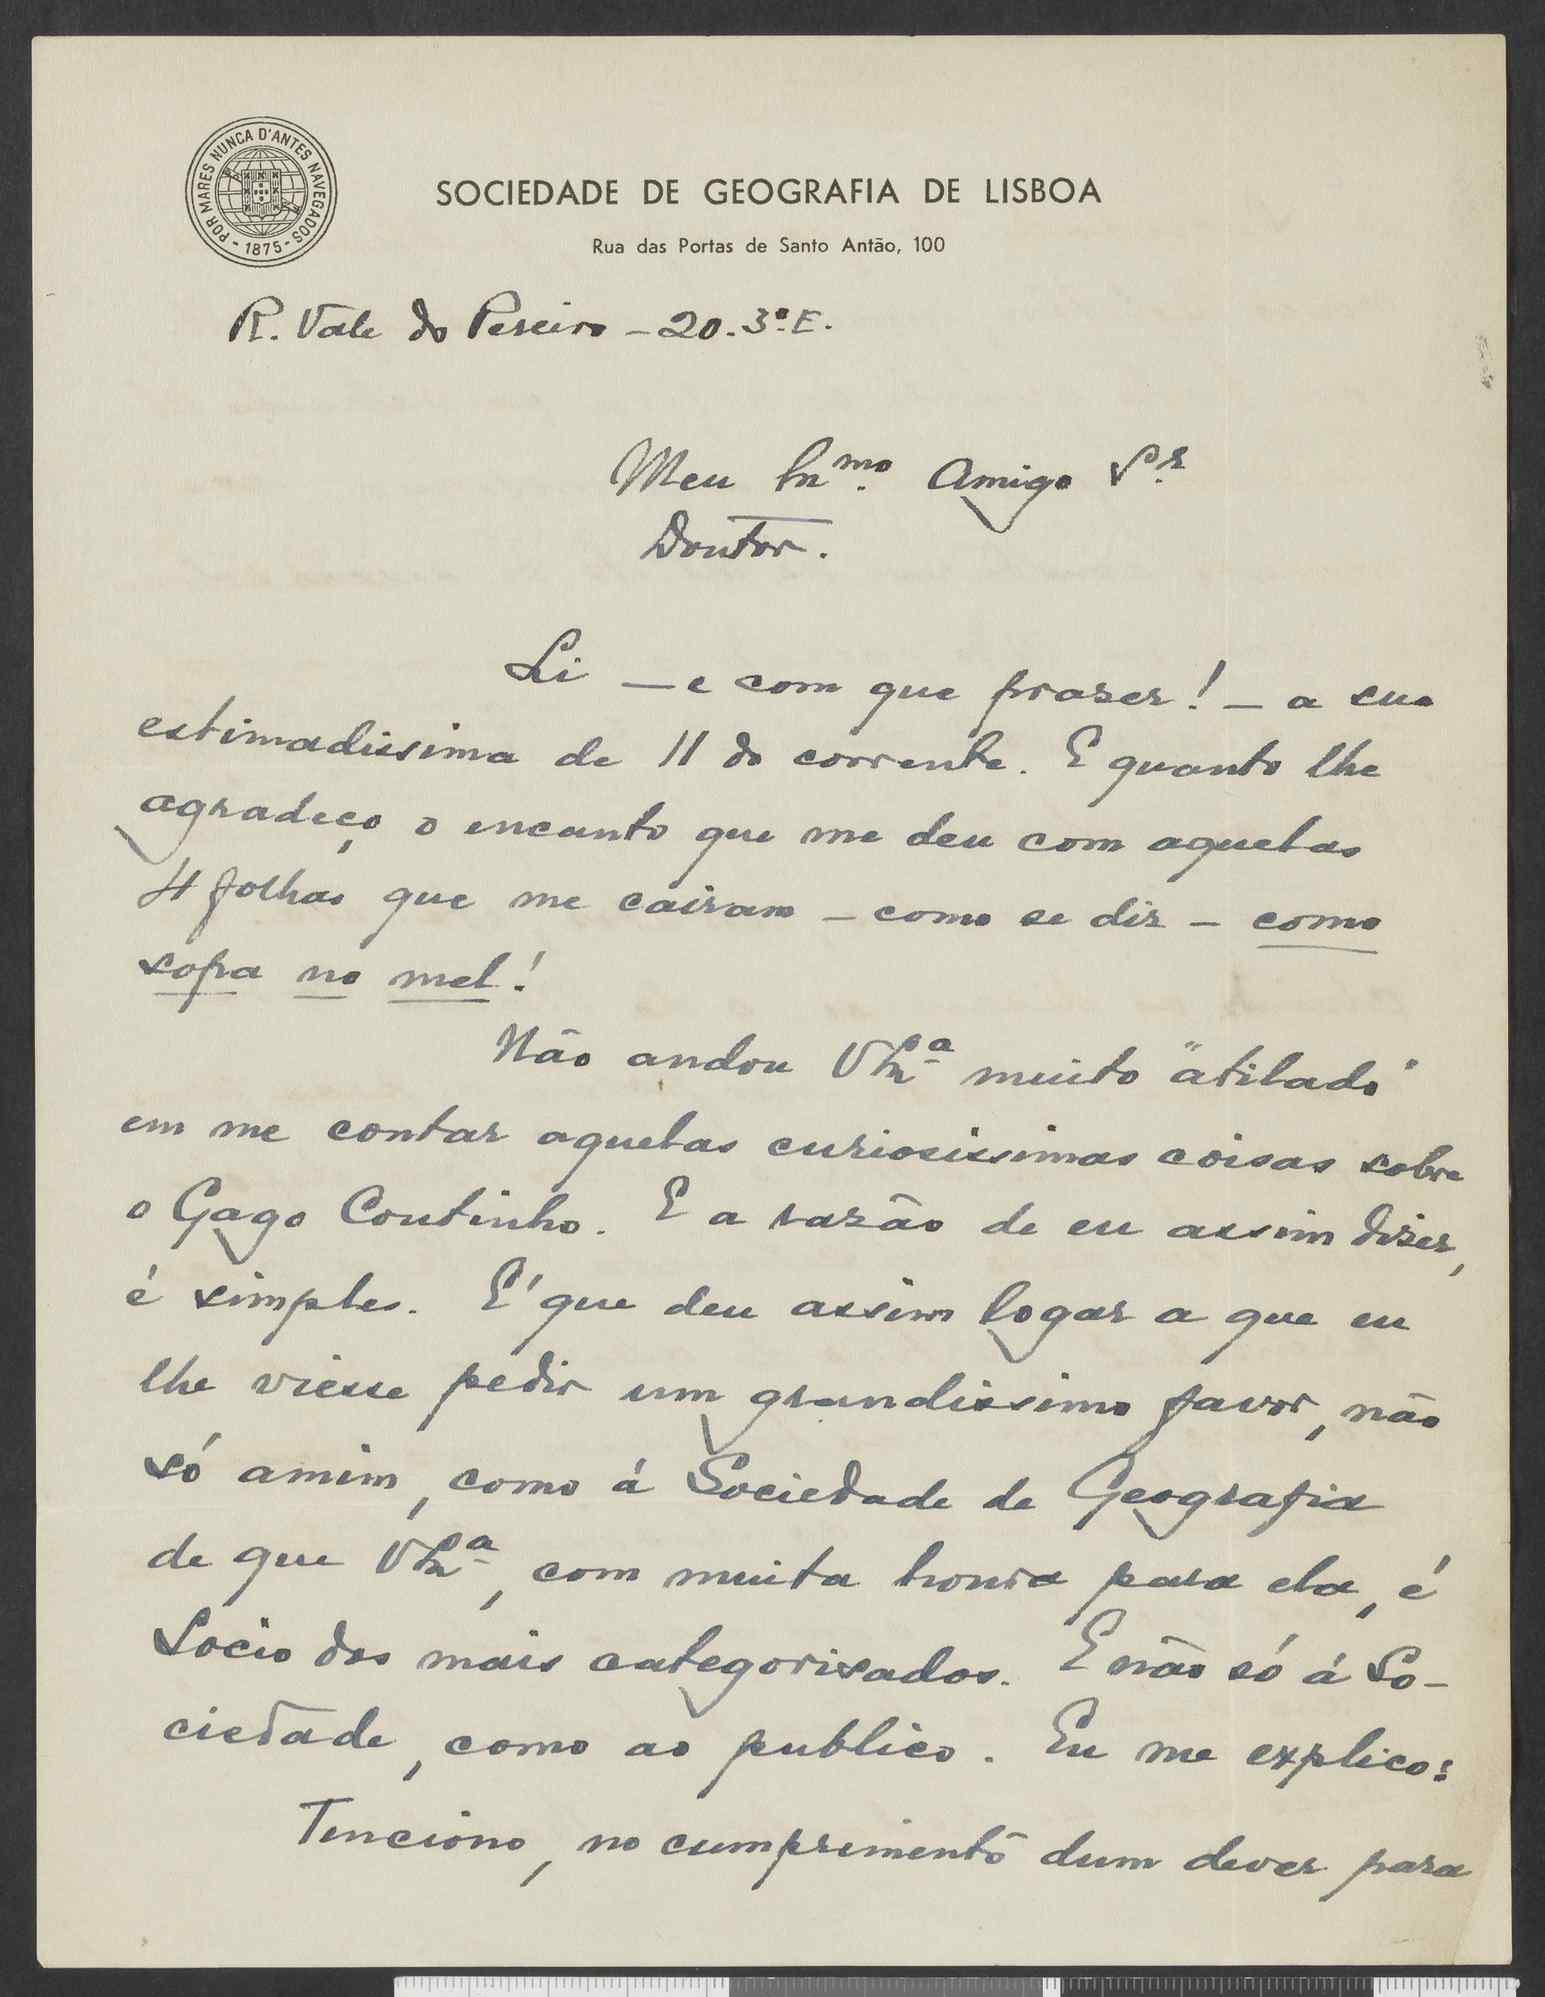 POR MARES NUNCA D'ANTES NAVEGADOS
- 1875 -
SOCIEDADE DE GEOGRAFIA DE LISBOA
Rua das Portas de Santo Antão, 100
R. Vale do Pereiro - 20. 3º. E.
Meu Exmo. Amigo Sr.
Doutor.
Li — e com que praser! — a sua
estimadissima de 11 do corrente. E quanto lhe
agradeço o encanto que me deu com aquelas
4 folhas que me cairam — como se diz — como
sopa no mel!
Não andou V Exª muito "atilado"
em me contar aquelas curiosissimas coisas sobre
o Gago Coutinho. E a razão de eu assim dizer,
é simples. É que deu assim logar a que eu
lhe viesse pedir um grandissimo favor, não
só amim, como á Sociedade de Geografia
de que V Exª, com muita honra para ela, é
Socio dos mais categorisados. E não só á So-
ciedade, como ao publico. Eu me explico:
Tenciono, no cumprimento dum dever para